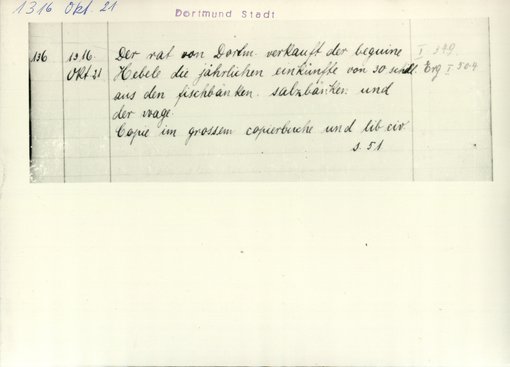 1316 Okt. 21
Dortmund Stadt
136 1316 Der rat von Dortm. verkauft der beguine I 349
Okt 21 Hebele die jährlichen einkünfte von 30 schill. Erg I 504
aus den fischbänken, salzbänken und
der wage.
Copie im grossem copierbuche und lib civ
s. 51